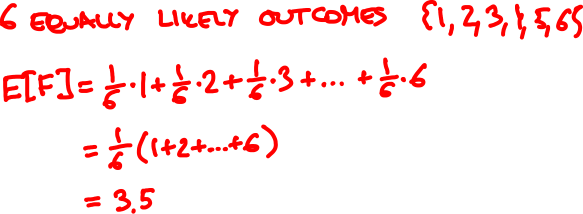 6 EQUALLY LIKELY OUTCOMES {1,2,3,},5,6}
E[F]= 1/6·1+1/6·2+1/6·3+...+1/6·6
= 1/6(1+2+...+6)
= 3.5